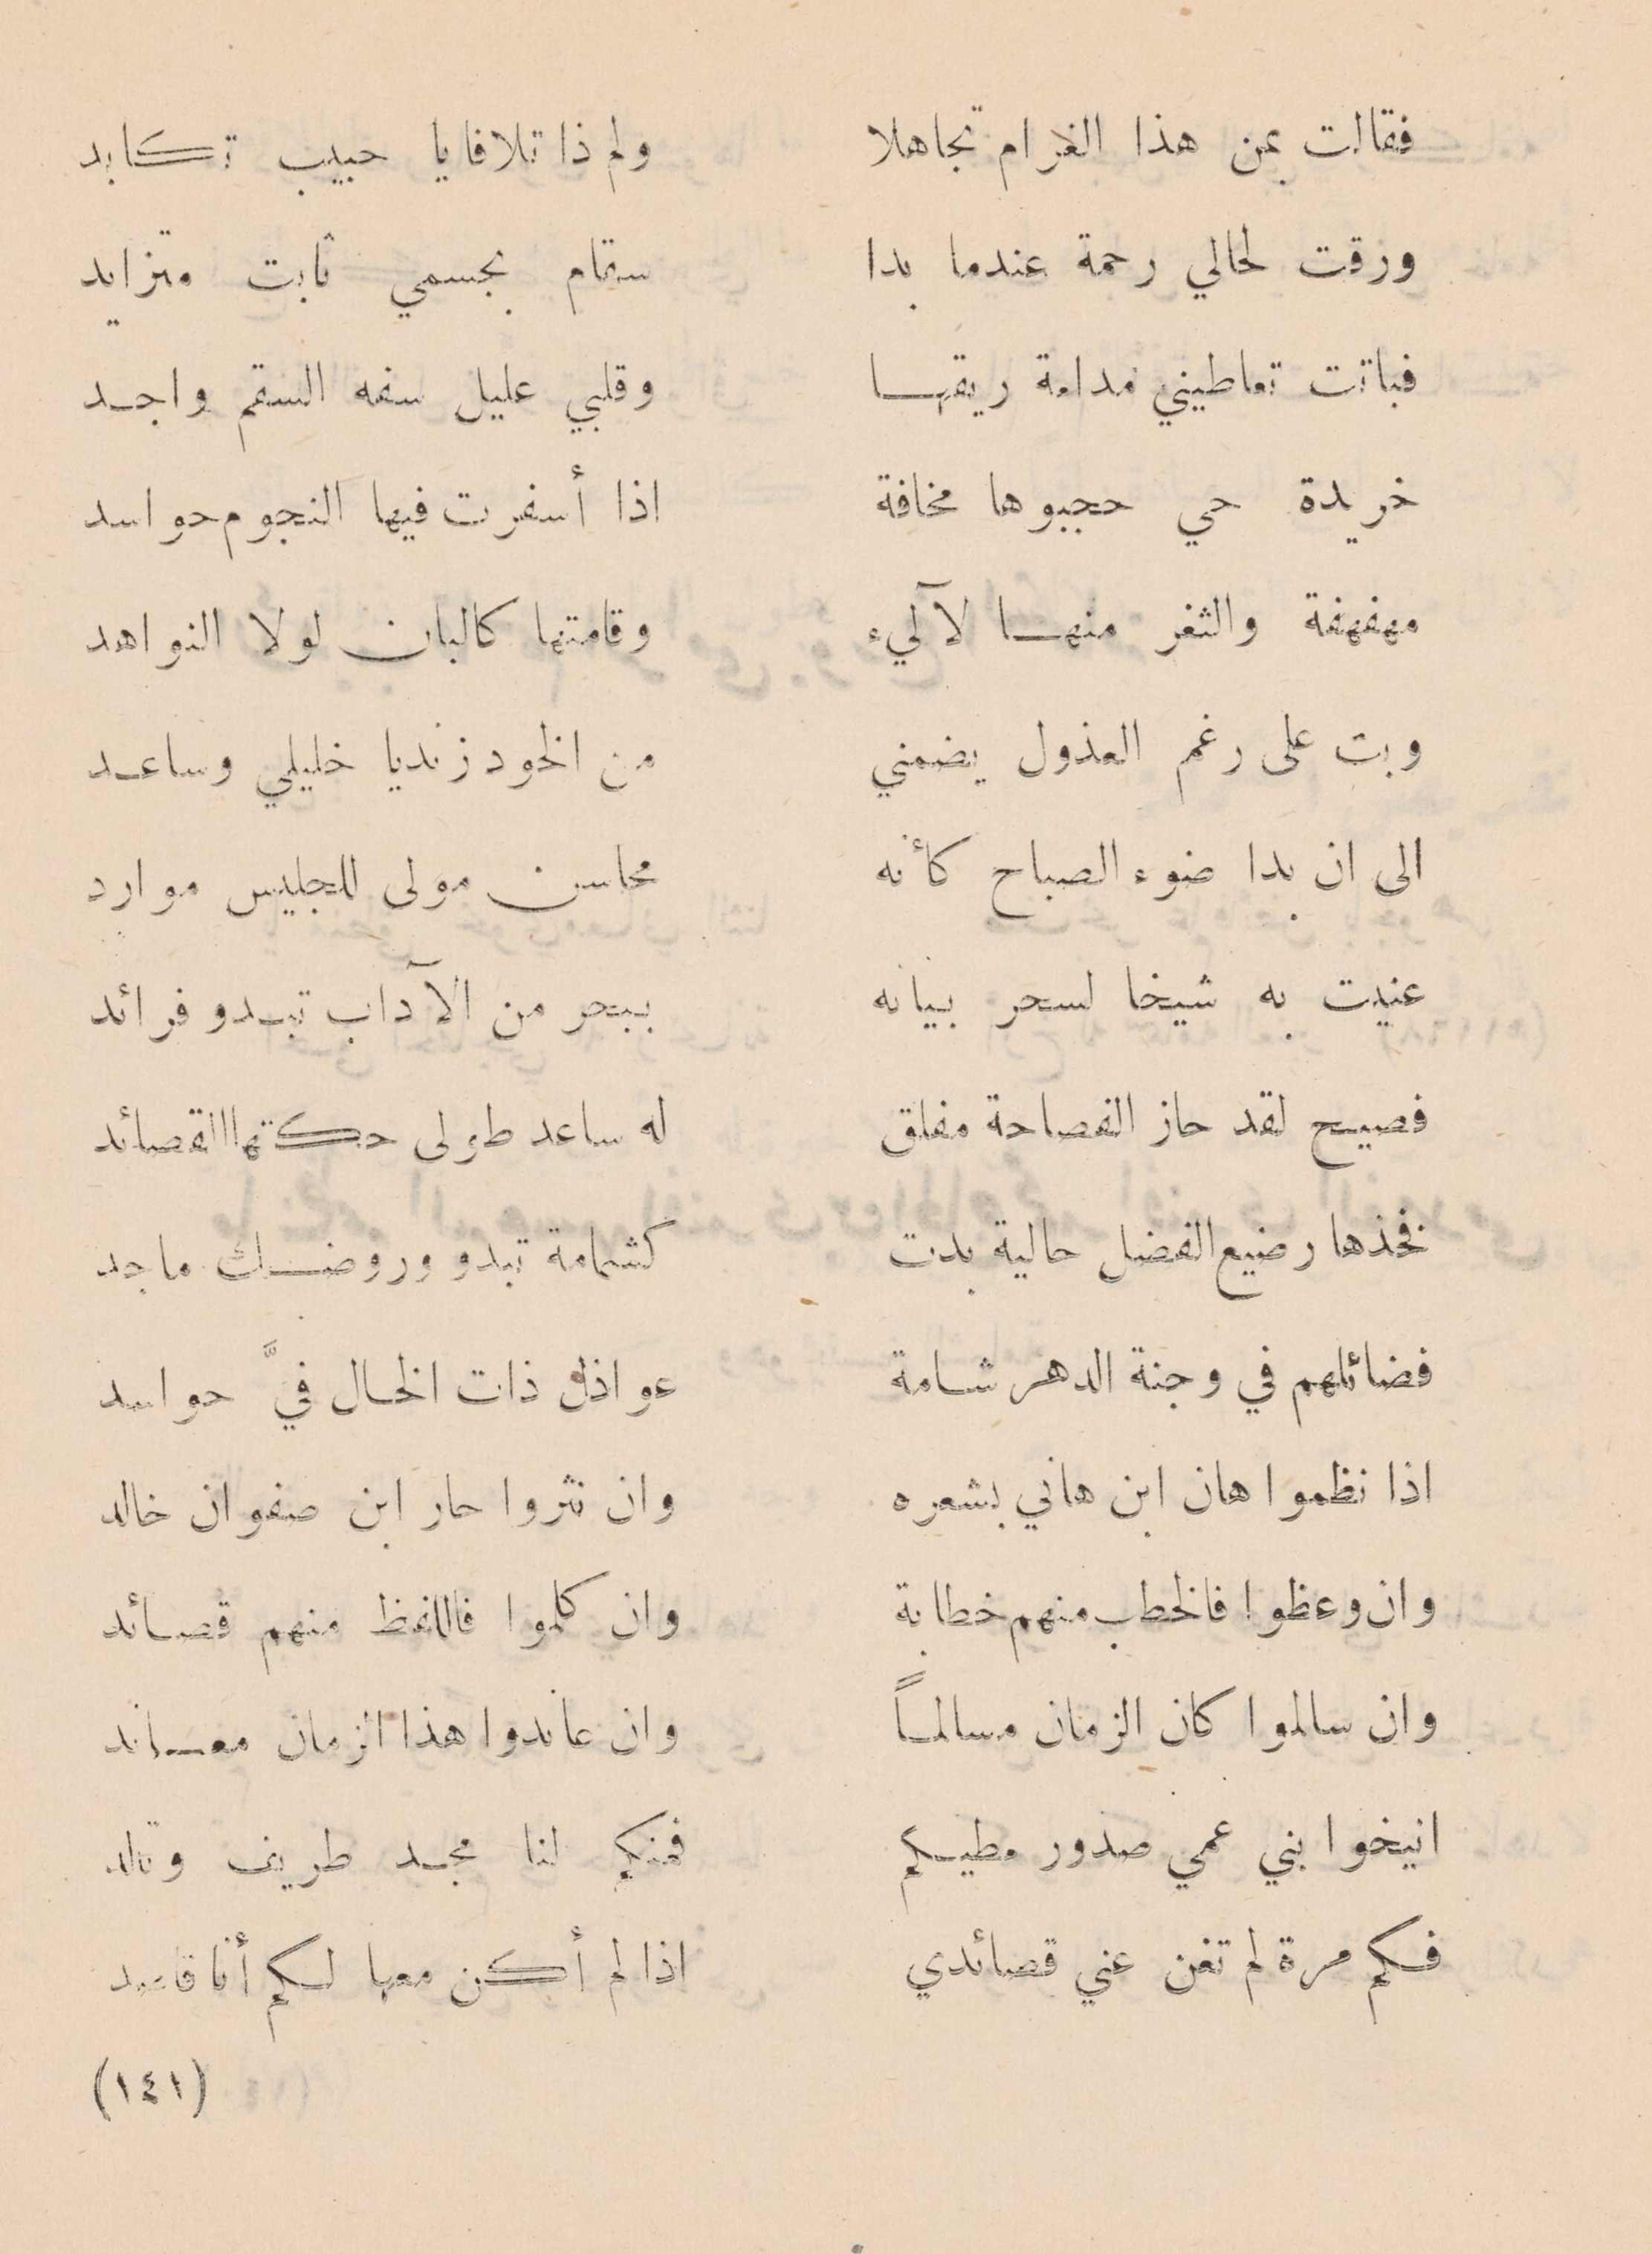 فقالت بمن هذا الغرام تجاهلا ولم ذا تلافا يا حبيب تكابد
ورقت لحالي رحمة عندما بدا سقام بجسمي ثابت متزايد
فباتت تعاطيني مدامة ريقها وقلبي عليل سفه السقم واجد
خريدة حي حجبوها مخافة اذا أسفرت فيها النجوم حواسد
مهفهفة والثغر منها لآليء وقامتها كالبان لولا النواهد
وبت على رغم العذول يضمني من الخود زند يا خليلي وساعد
الى ان بدا ضوء الصباح كأنه محاسن مولى للجليس موارد
عنيت به شيخا لسحر بيانه ببحر من الآداب تبدو فرائد
فصيح لقد حاز الفصاحة مفلق له ساعد طولى حكتها القصائد
فخذها رضيع الفضل حالية بدت كشمامة تبدو وروضك ماجد
فضائلهم في وجنة الدهر شامة عواذل ذات الخال فيَّ حواسد
اذا نظموا هان ابن هاني بشعره وان نثروا حار ابن صفوان خالد
وان وعظوا فالخطب منهم خطابة وان كلموا فاللفظ منهم قصائد
وان سالموا كان الزمان مسالماً وان عاندوا هذا الزمان معاند
انيخوا بني عمي صدور مطيكم فمنكم لنا مجد طريف وتالد
فكم مرة لم تغن عني قصائدي اذا لم أكن معها لكم أنا قاصد
(١٤١)